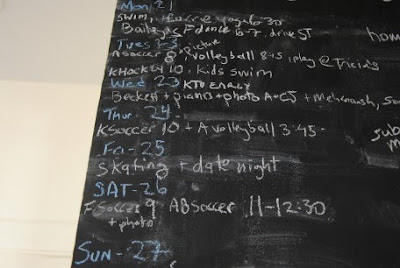 Mon 21
swim, yoga 6:30
Bailey's F dance 6-7, drive ST
Tues
A soccer 8 , Volleyball 8:45 play @ Tricia's
K Hockey 10, Kids swim
Wed 23 KTU EARLY
Beckett + piano + photo A+CJ +
Thur - 24
K Soccer 10 + A Volleyball 3:45 -
Fri - 25
Skating + date night
SAT - 26
F Soccer 9 AB Soccer 11-12:30
+ photo
SUN - 27